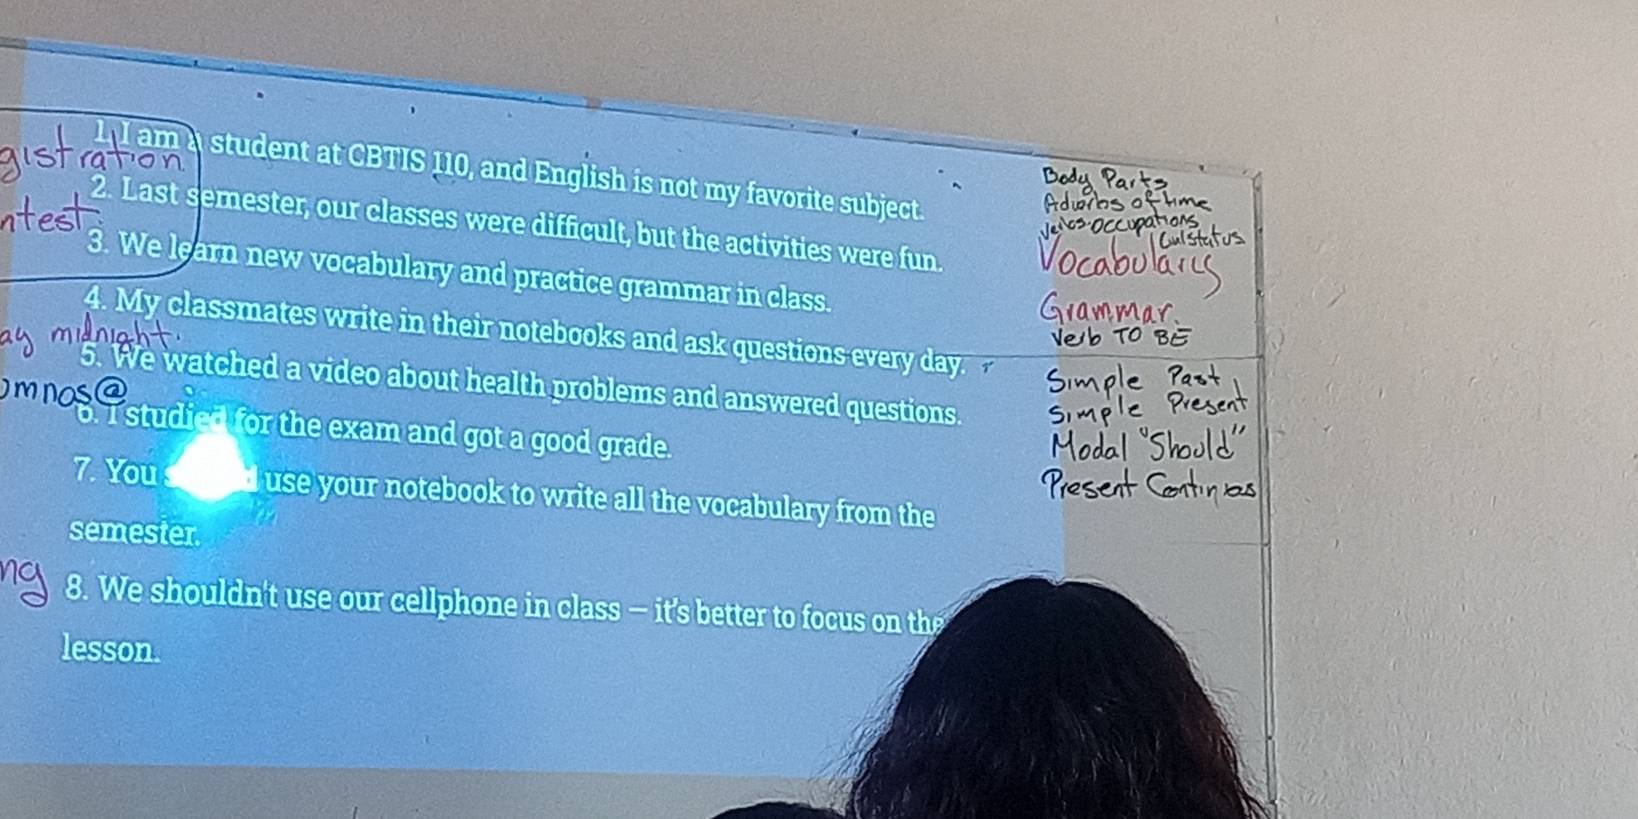 1. I am a student at CBTIS 110, and English is not my favorite subject.
gistration
2. Last semester, our classes were difficult, but the activities were fun.
ntest
3. We learn new vocabulary and practice grammar in class.
4. My classmates write in their notebooks and ask questions every day.
ay midnight.
5. We watched a video about health problems and answered questions.
omnos@
6. I studied for the exam and got a good grade.
7. You use your notebook to write all the vocabulary from the
semester.
ng
8. We shouldn't use our cellphone in class – it's better to focus on the
lesson.
Body Parts
Adverbs of time
Verbs-occupations
Civil status
Vocabulary
Grammar.
Verb TO BE
Simple Past
Simple Present
Modal "Should"
Present Continuos